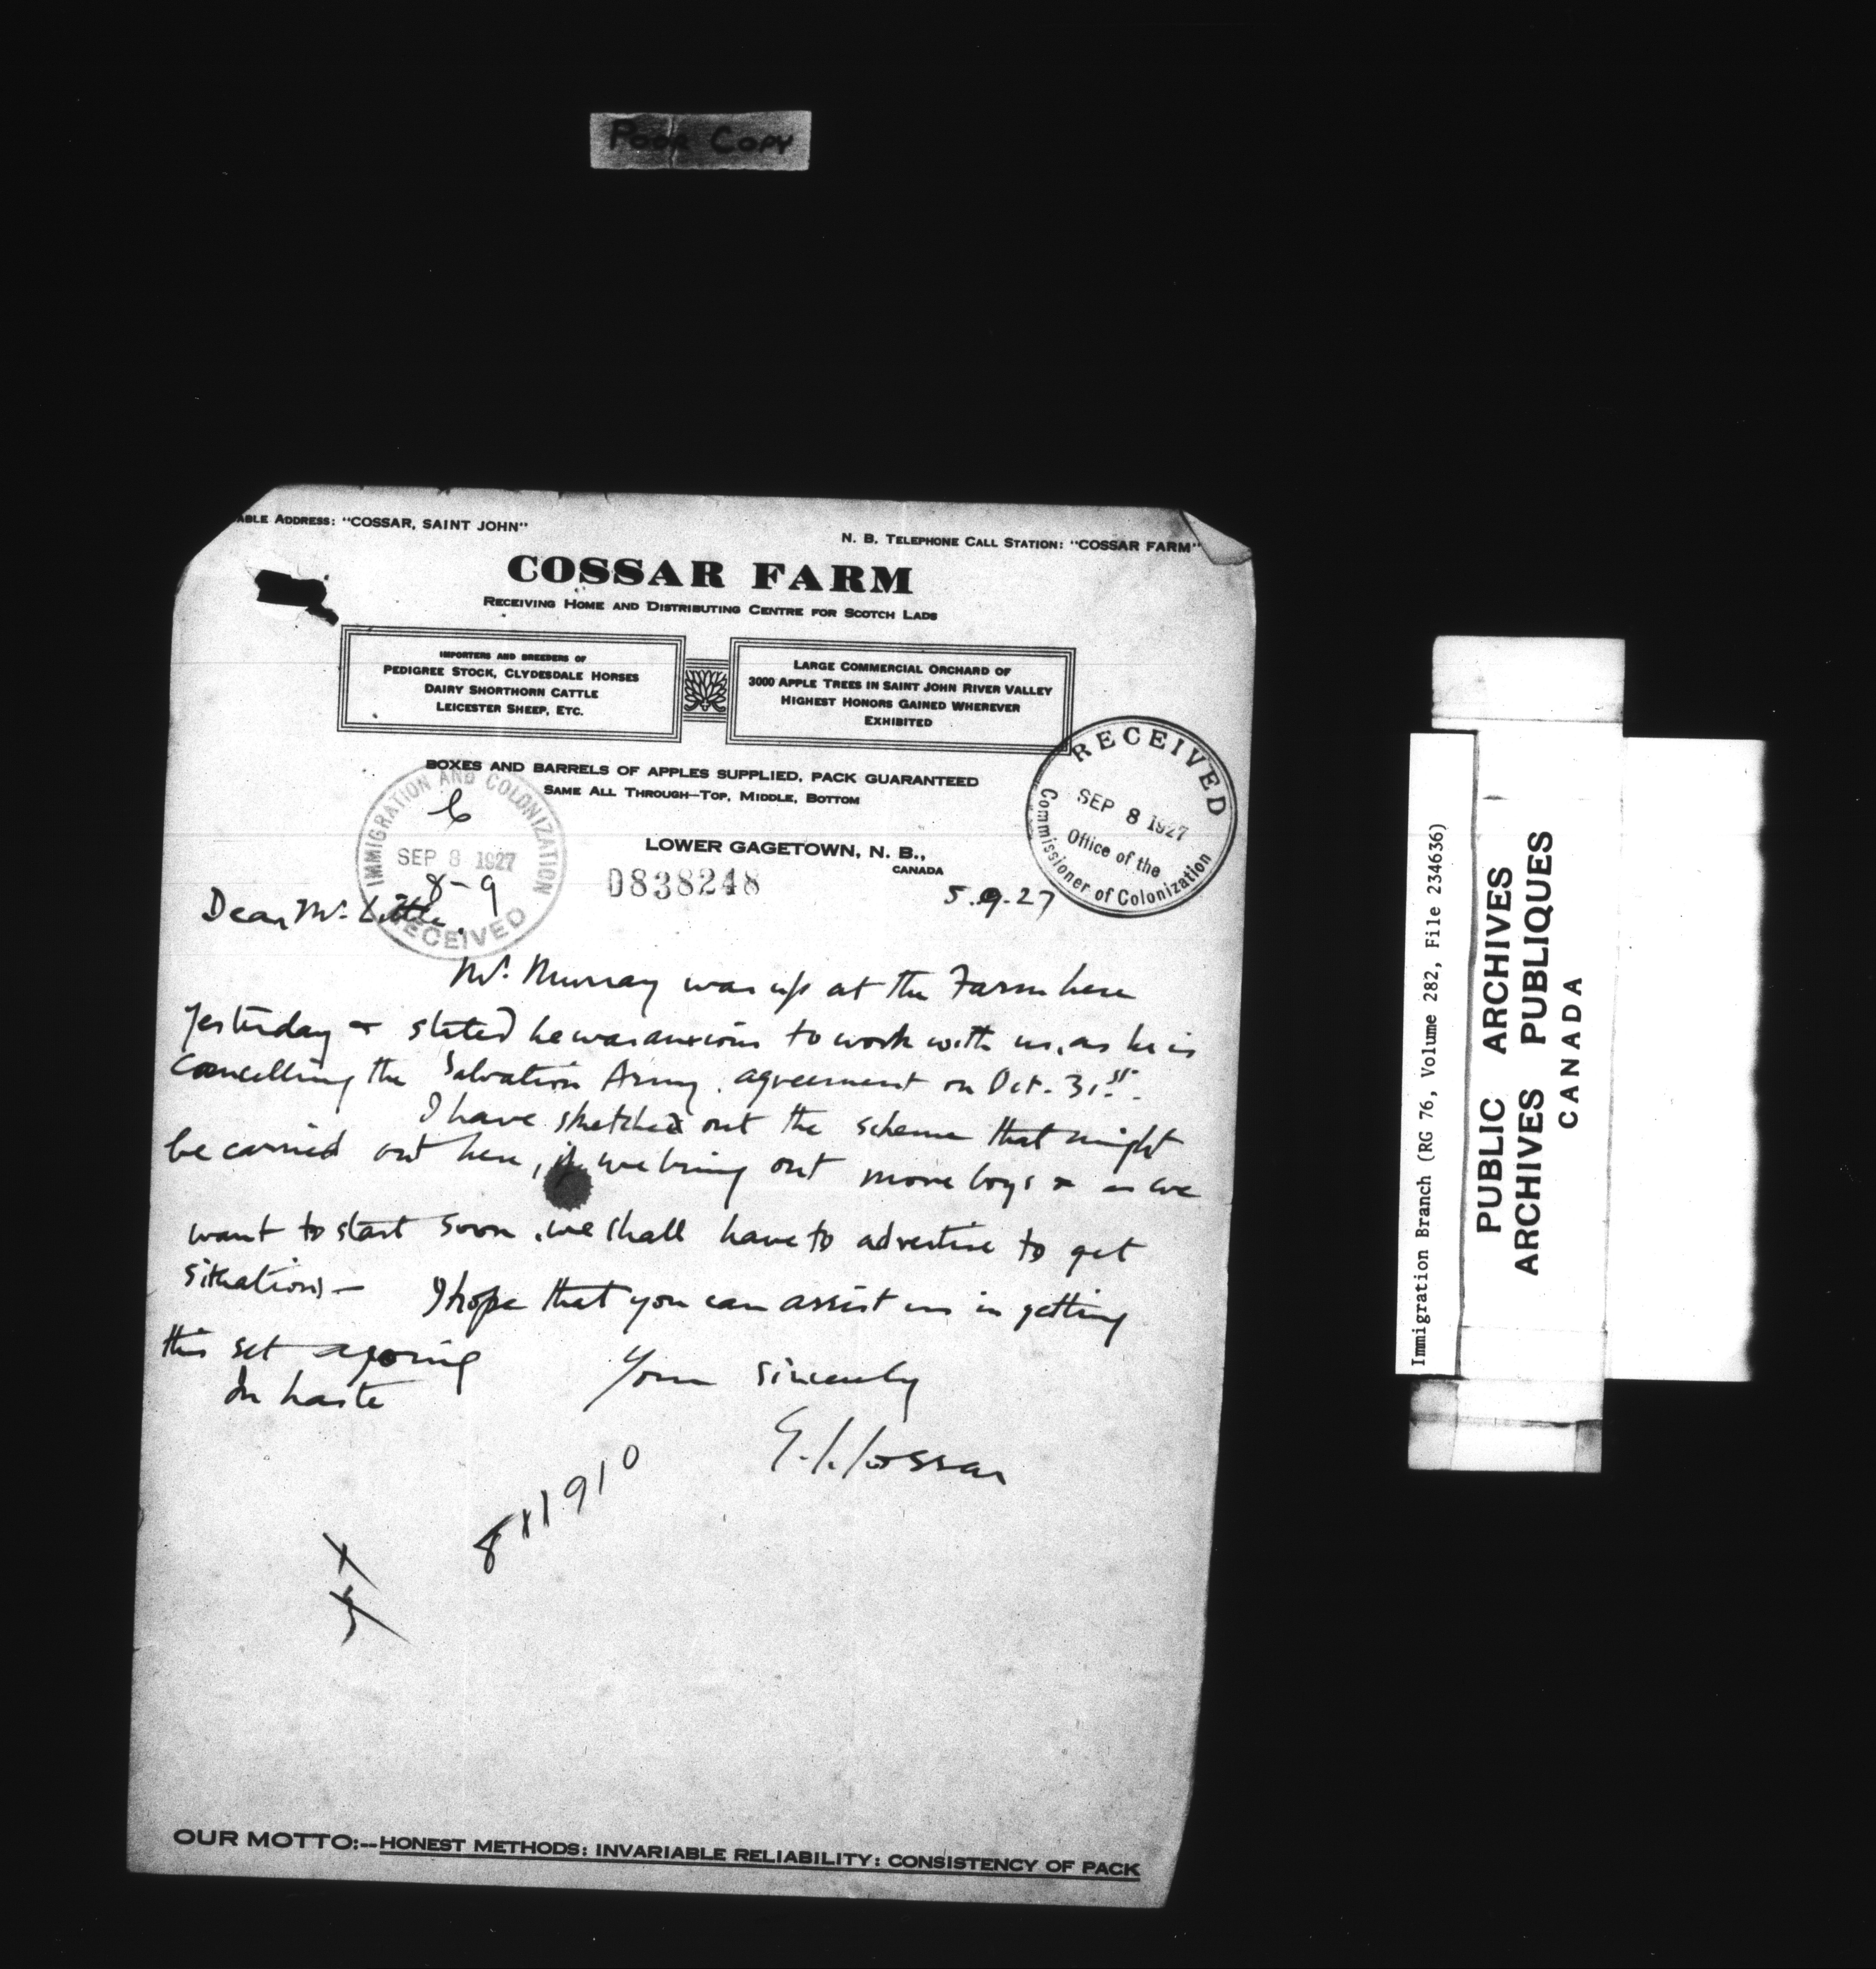 Poor Copy
ABLE ADDRESS: "COSSAR, SAINT JOHN"
N. B. TELEPHONE CALL STATION: "COSSAR FARM"
COSSAR FARM
RECEIVING HOME AND DISTRIBUTING CENTRE FOR SCOTCH LADS
IMPORTERS AND BREEDERS OF
PEDIGREE STOCK, CLYDESDALE HORSES
DAIRY SHORTHORN CATTLE
LEICESTER SHEEP, ETC.
LARGE COMMERCIAL ORCHARD OF
3000 APPLE TREES IN SAINT JOHN RIVER VALLEY
HIGHEST HONORS GAINED WHEREVER
EXHIBITED
BOXES AND BARRELS OF APPLES SUPPLIED, PACK GUARANTEED
SAME ALL THROUGH—TOP, MIDDLE, BOTTOM
IMMIGRATION AND COLONIZATION
SEP 8 1927
8-9
RECEIVED
RECEIVED
SEP 8 1927
Office of the
Commissioner of Colonization
LOWER GAGETOWN, N. B.,
CANADA
D838248
5.9.27
Dear Mr. Little,
Mr. Murray was up at the Farm here
yesterday & stated he was anxious to work with us, as he is
cancelling the Salvation Army agreement on Oct. 31st.
I have sketched out the scheme that might
be carried out here, if we bring out more boys & as we
want to start soon, we shall have to advertise to get
situations — I hope that you can assist us in getting
this set agoing
Yours sincerely
In haste
G. C. Cossar
OUR MOTTO:--HONEST METHODS: INVARIABLE RELIABILITY: CONSISTENCY OF PACK
Immigration Branch (RG 76, Volume 282, File 234636)
PUBLIC ARCHIVES
ARCHIVES PUBLIQUES
CANADA